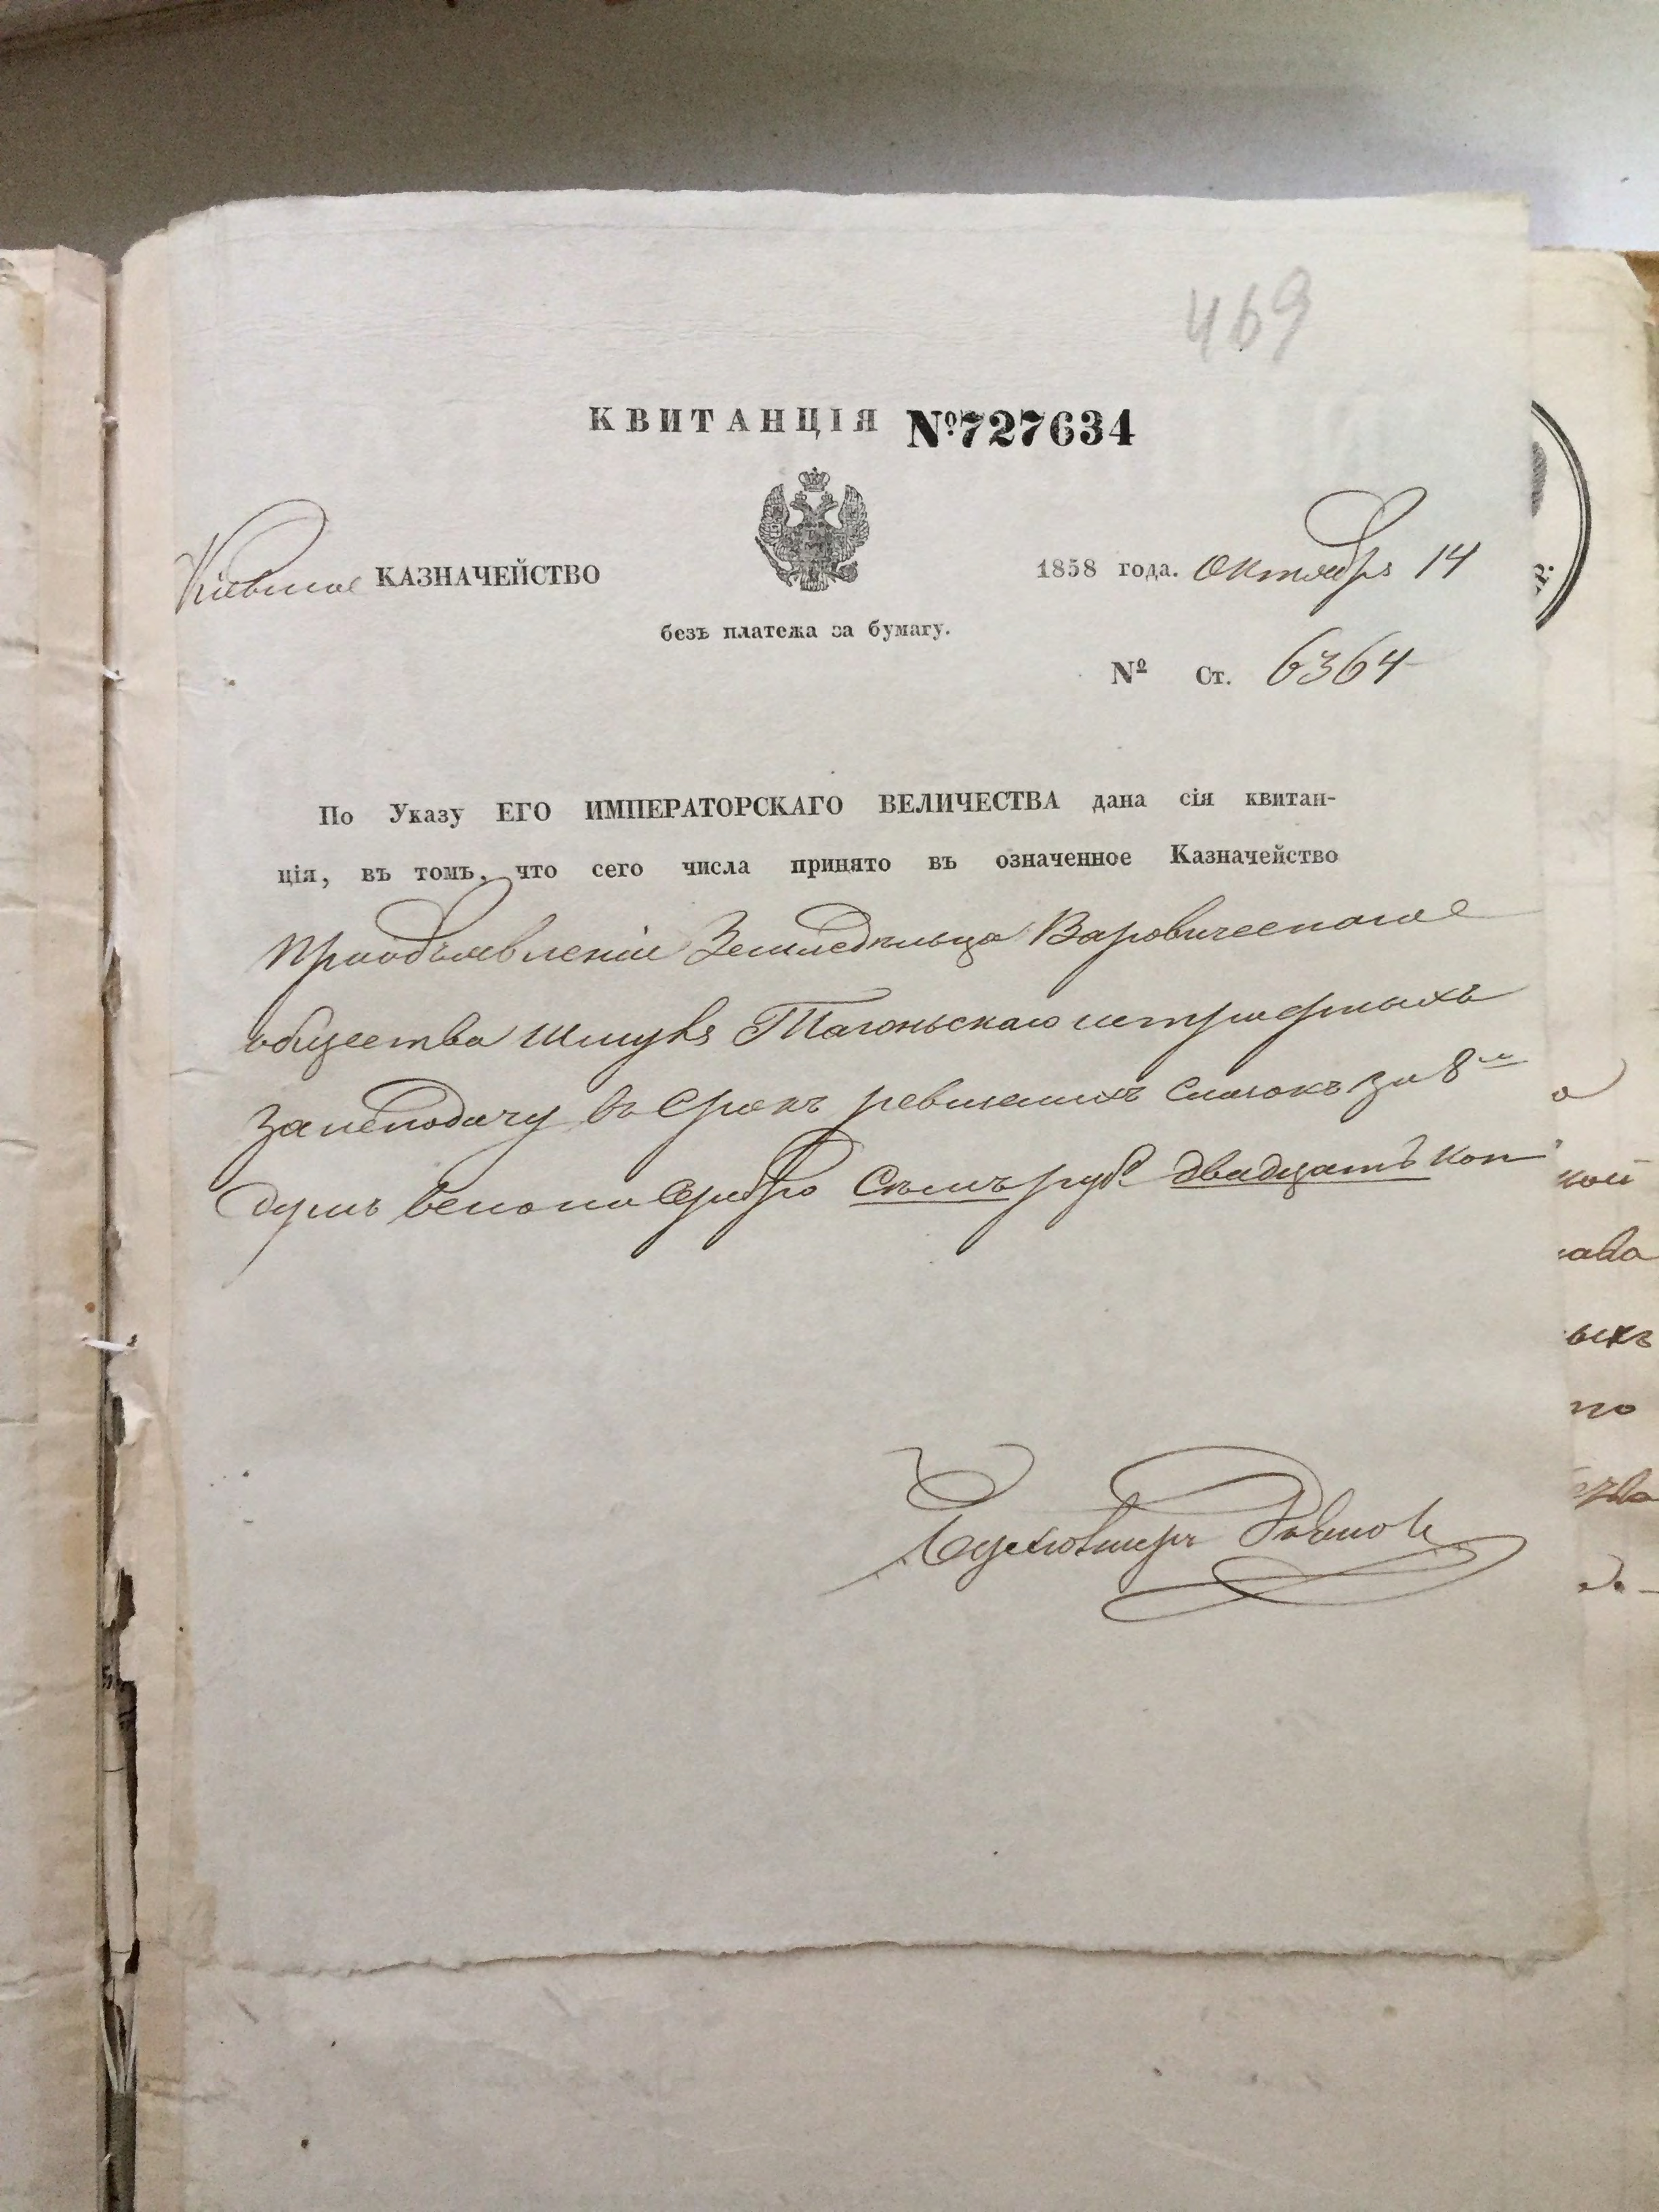 469
КВИТАНЦІЯ №727634
Кіевское КАЗНАЧЕЙСТВО
1858 года. Октября 14
безъ платежа за бумагу.
№ Ст. 6364
По Указу ЕГО ИМПЕРАТОРСКАГО ВЕЛИЧЕСТВА дана сія квитан-
ція, въ томъ, что сего числа принято въ означенное Казначейство
приобъявленіи Земледельца Варовическаго
общества Шмуля штрафныхъ
за неподачу въ срокъ ревизскихъ сказокъ за 8м
душъ пени серебро Семъ руб. двадцать коп
Бухгалтеръ